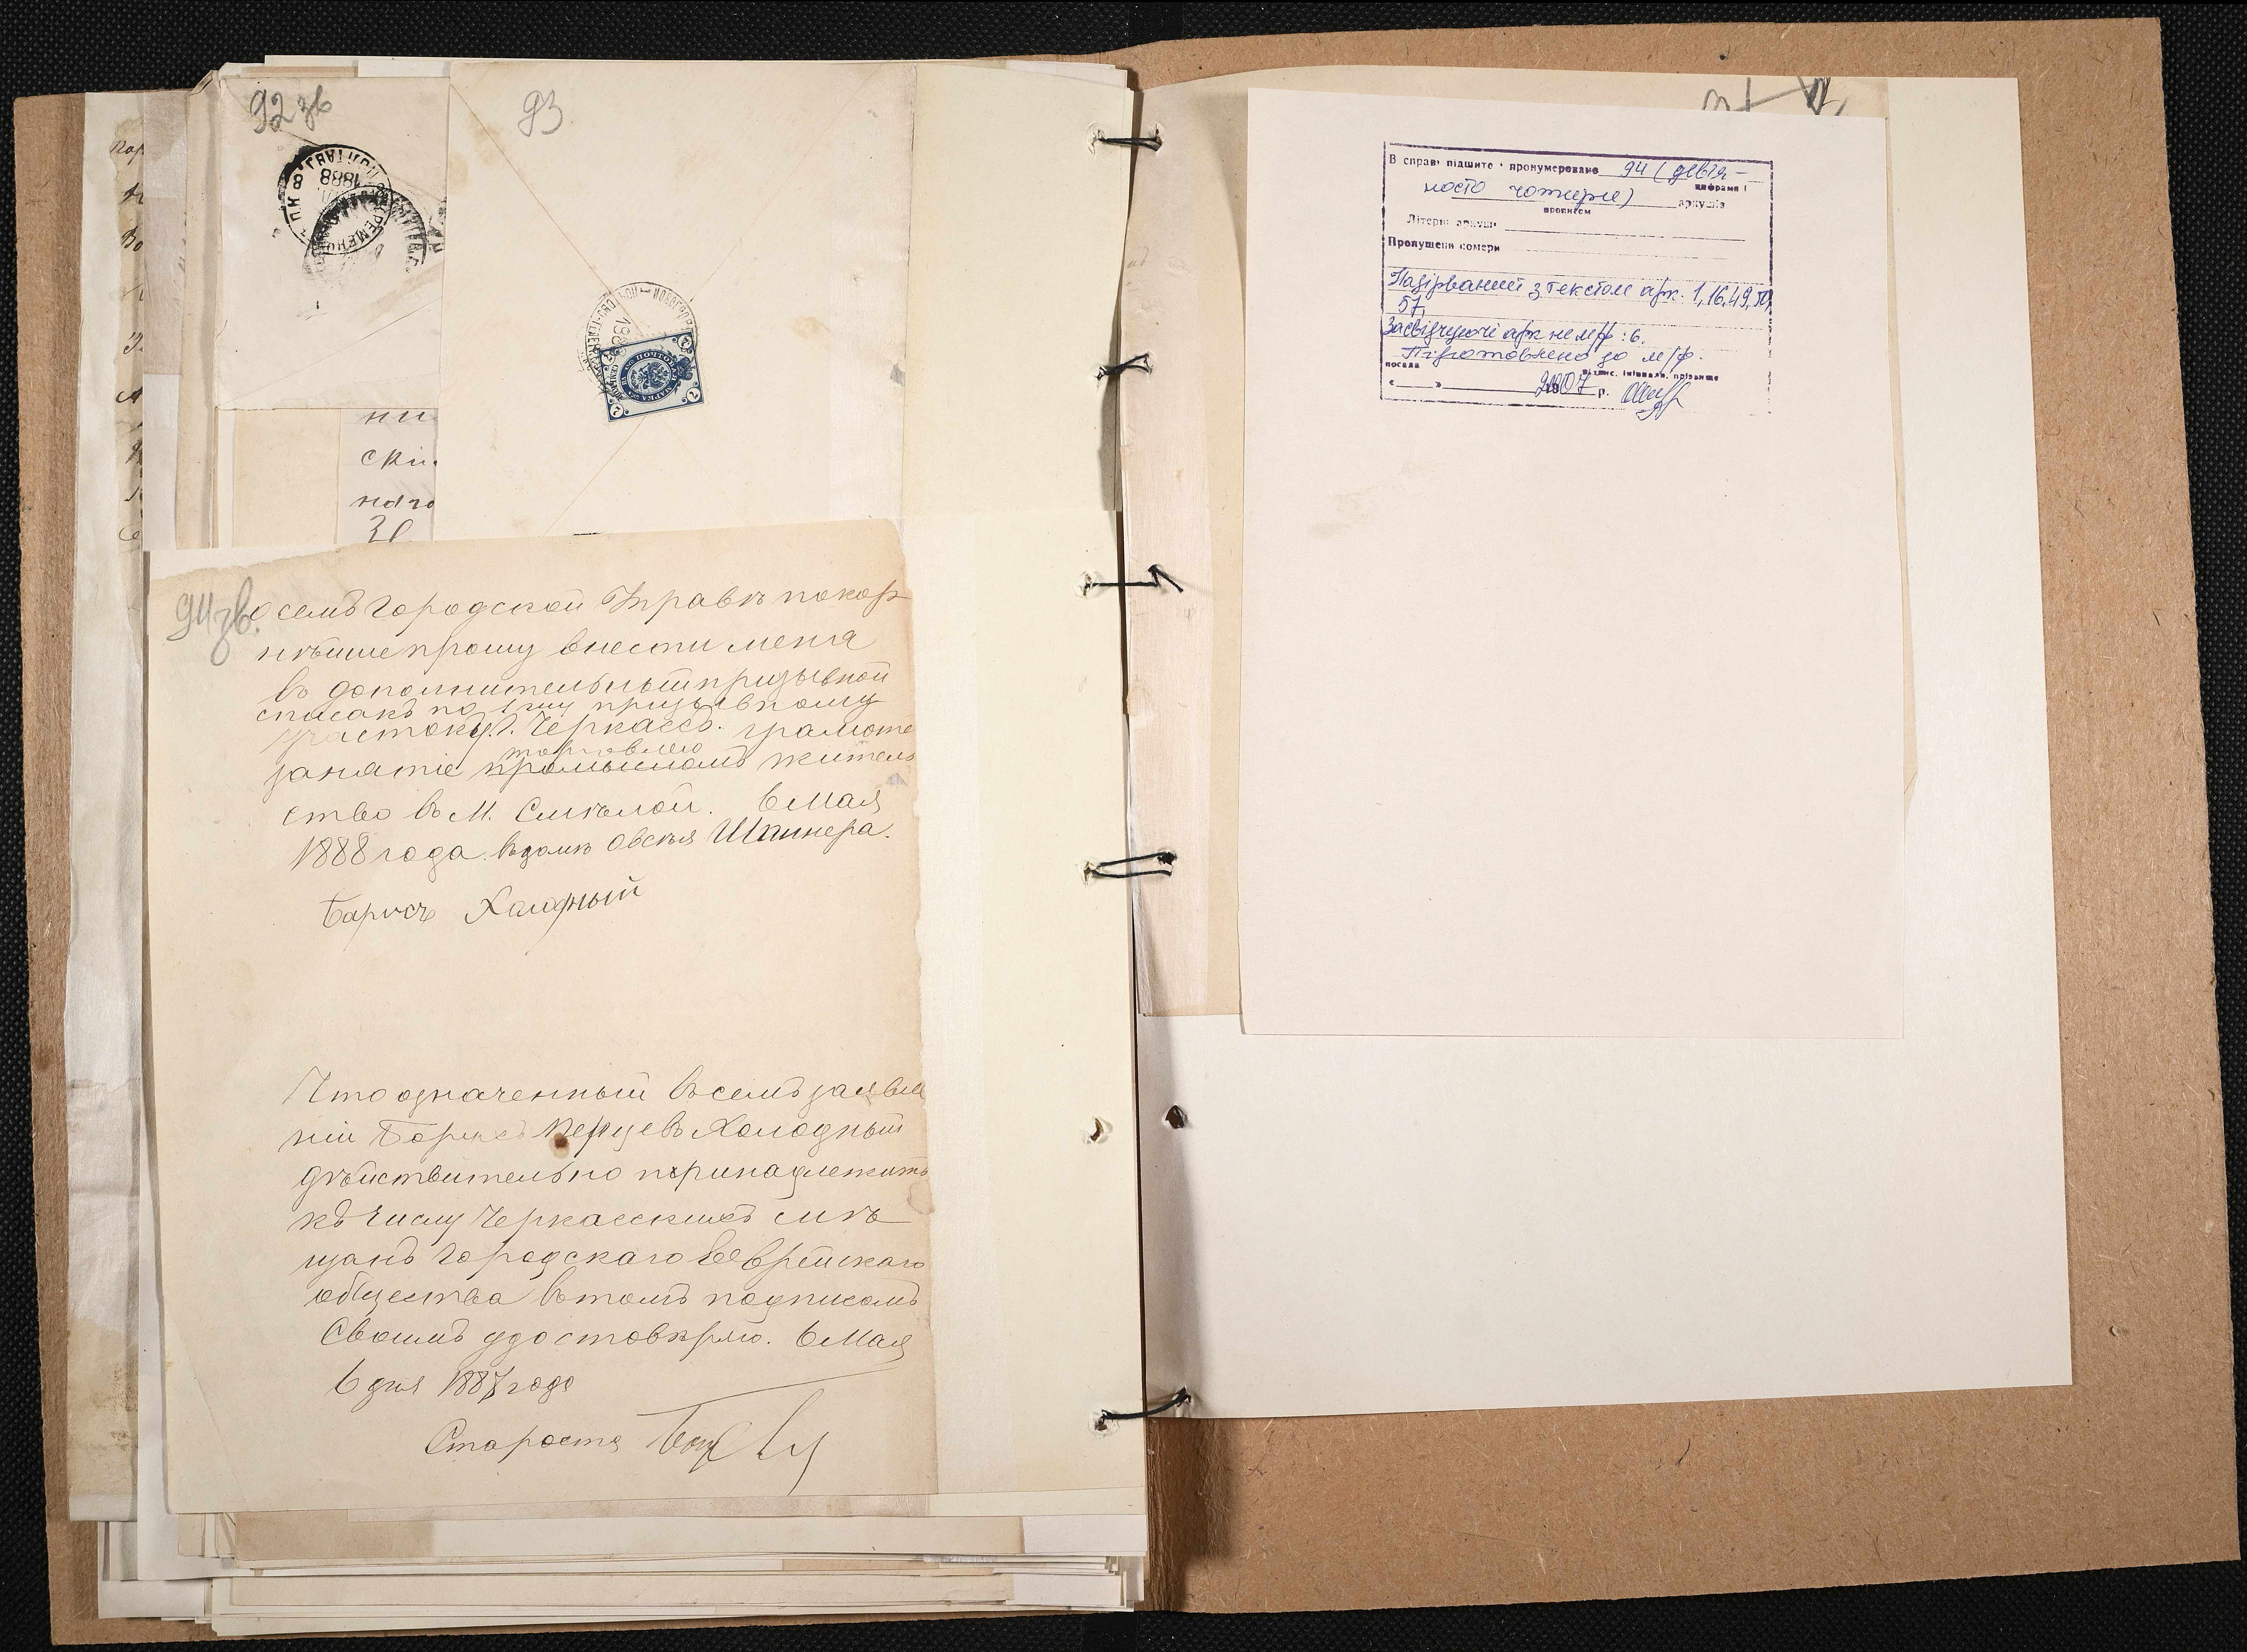 92 зв
93
1888
ни
ски
наго
94 зв.
семъ Городской Управѣ покор
нѣише прошу внести меня
въ дополнительный призывной
списакъ по 1му призывному
участоку г. Черкассъ. грамоте
торговлею
занятіе промысломъ житель
ство въ М. Смѣлой. 6 Мая
1888 года. въ домѣ Овсѣя Шпинера.
Барисъ Халодный
Что означенный въ семъ заявле
ніи Борис Холодный
дѣйствительно принадлежитъ
къ числу Черкасскихъ мѣ
щанъ Городскаго Еврейскаго
общества въ томъ подписомъ
Своимъ удостовѣрю. 6 Мая
6 дня 1887 года
Староста
В справі підшито і пронумеровано 94 (девʼя-
цифрами і
носто чотири) аркушів
прописом
Літерні аркуші
Пропущені номери
Надірваний з текстом арк. 1, 16, 49, 50,
57,
Засвідчуючі арк на м/ф: 6.
Підготовлено до м/ф.
посада підпис, ініціали, прізвище
« » 2007 р.